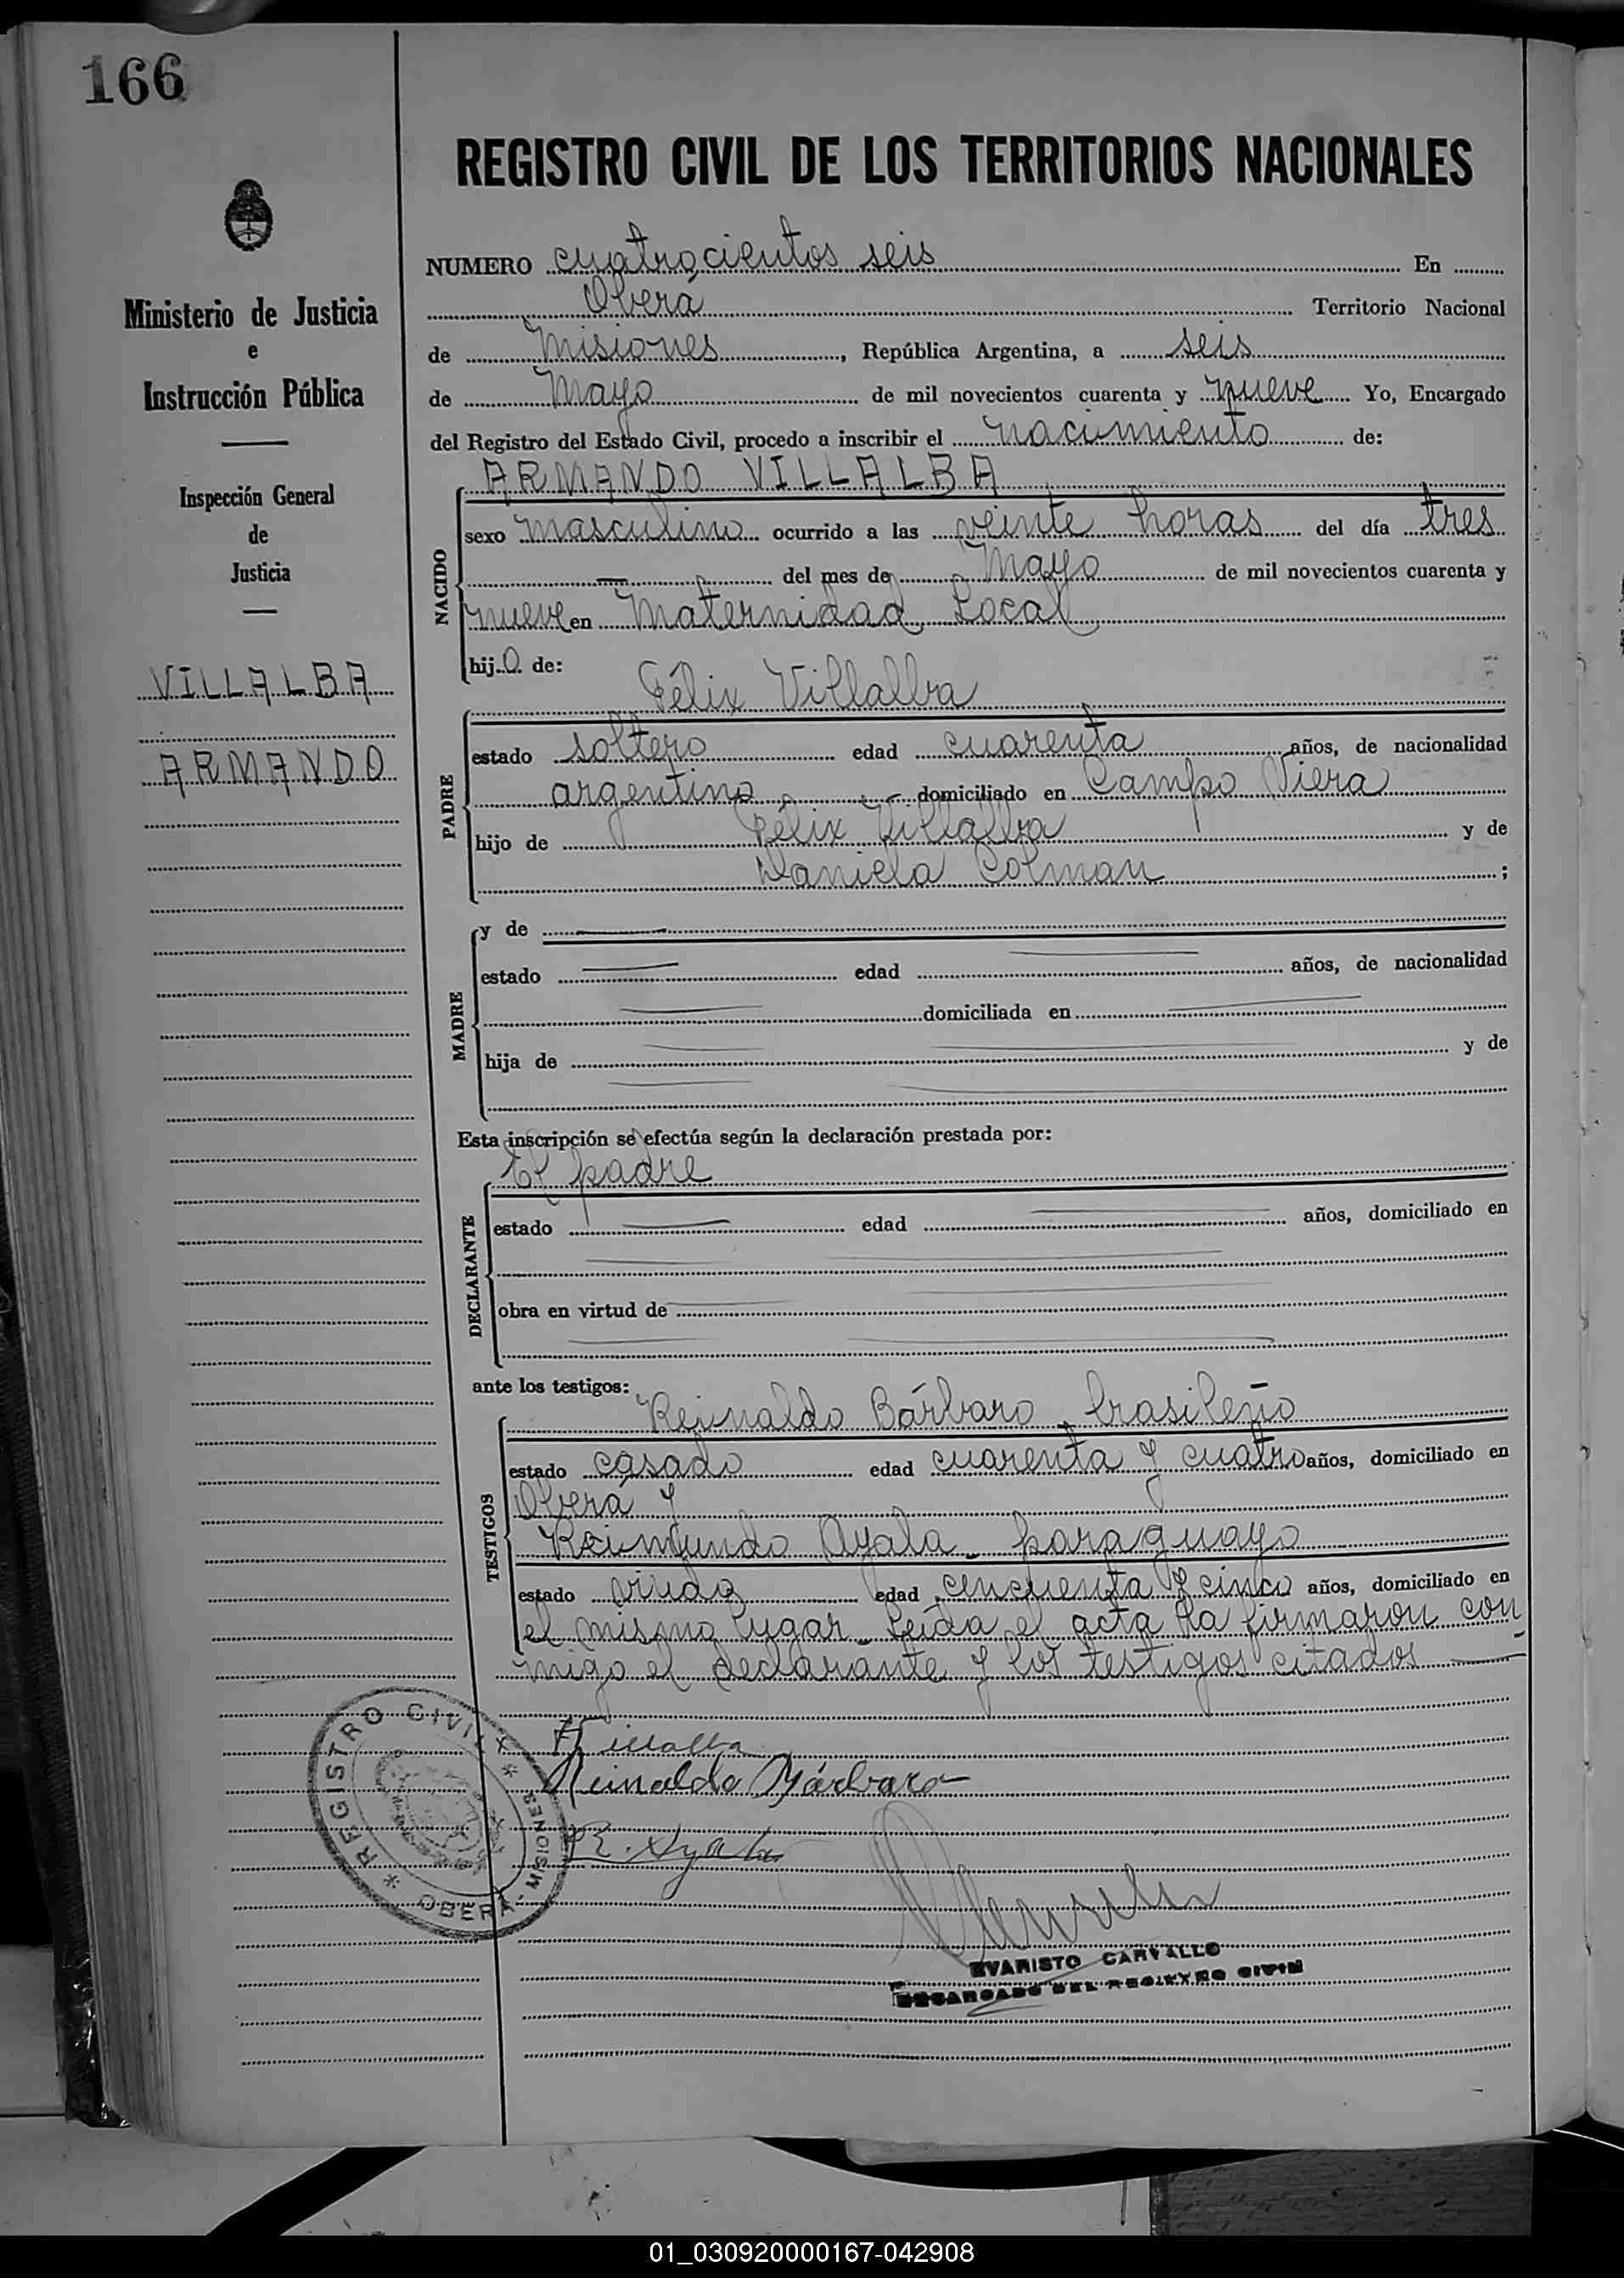 166
REGISTRO CIVIL DE LOS TERRITORIOS NACIONALES
Ministerio de Justicia
e
Instrucción Pública
Inspección General
de
Justicia
VILLALBA
ARMANDO
NUMERO cuatrocientos seis En
Oberá Territorio Nacional
de Misiones, República Argentina, a seis
de Mayo de mil novecientos cuarenta y nueve Yo, Encargado
del Registro del Estado Civil, procedo a inscribir el nacimiento de:
ARMANDO VILLALBA
NACIDO
sexo masculino ocurrido a las veinte horas del día tres
— del mes de Mayo de mil novecientos cuarenta y
nueve en Maternidad Local
hijo de:
Félix Villalba
PADRE
estado soltero edad cuarenta años, de nacionalidad
argentino domiciliado en Campo Viera
hijo de Félix Villalba y de
Daniela Colman ;
MADRE
y de —
estado — edad — años, de nacionalidad
— domiciliada en —
hija de — y de
Esta inscripción se efectúa según la declaración prestada por:
El padre
DECLARANTE
estado — edad — años, domiciliado en
obra en virtud de —
ante los testigos:
Reinaldo Bárbaro, brasileño
TESTIGOS
estado casado edad cuarenta y cuatro años, domiciliado en
Oberá y
Reimundo Ayala - paraguayo
estado viudo edad cincuenta y cinco años, domiciliado en
el mismo lugar. Leída el acta la firmaron con
migo el declarante y los testigos citados —
F Villalba
Reinaldo Bárbaro
R. Ayala
REGISTRO CIVIL
OBERA - MISIONES
EVARISTO CARVALLO
ENCARGADO DEL REGISTRO CIVIL
01_030920000167-042908